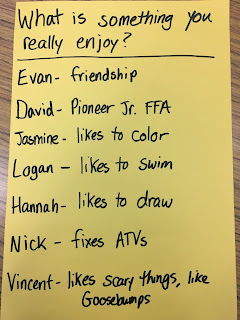 What is something you
really enjoy?
Evan- friendship
David- Pioneer Jr. FFA
Jasmine- likes to color
Logan - likes to swim
Hannah- likes to draw
Nick - fixes ATVs
Vincent- likes scary things, like
Goosebumps